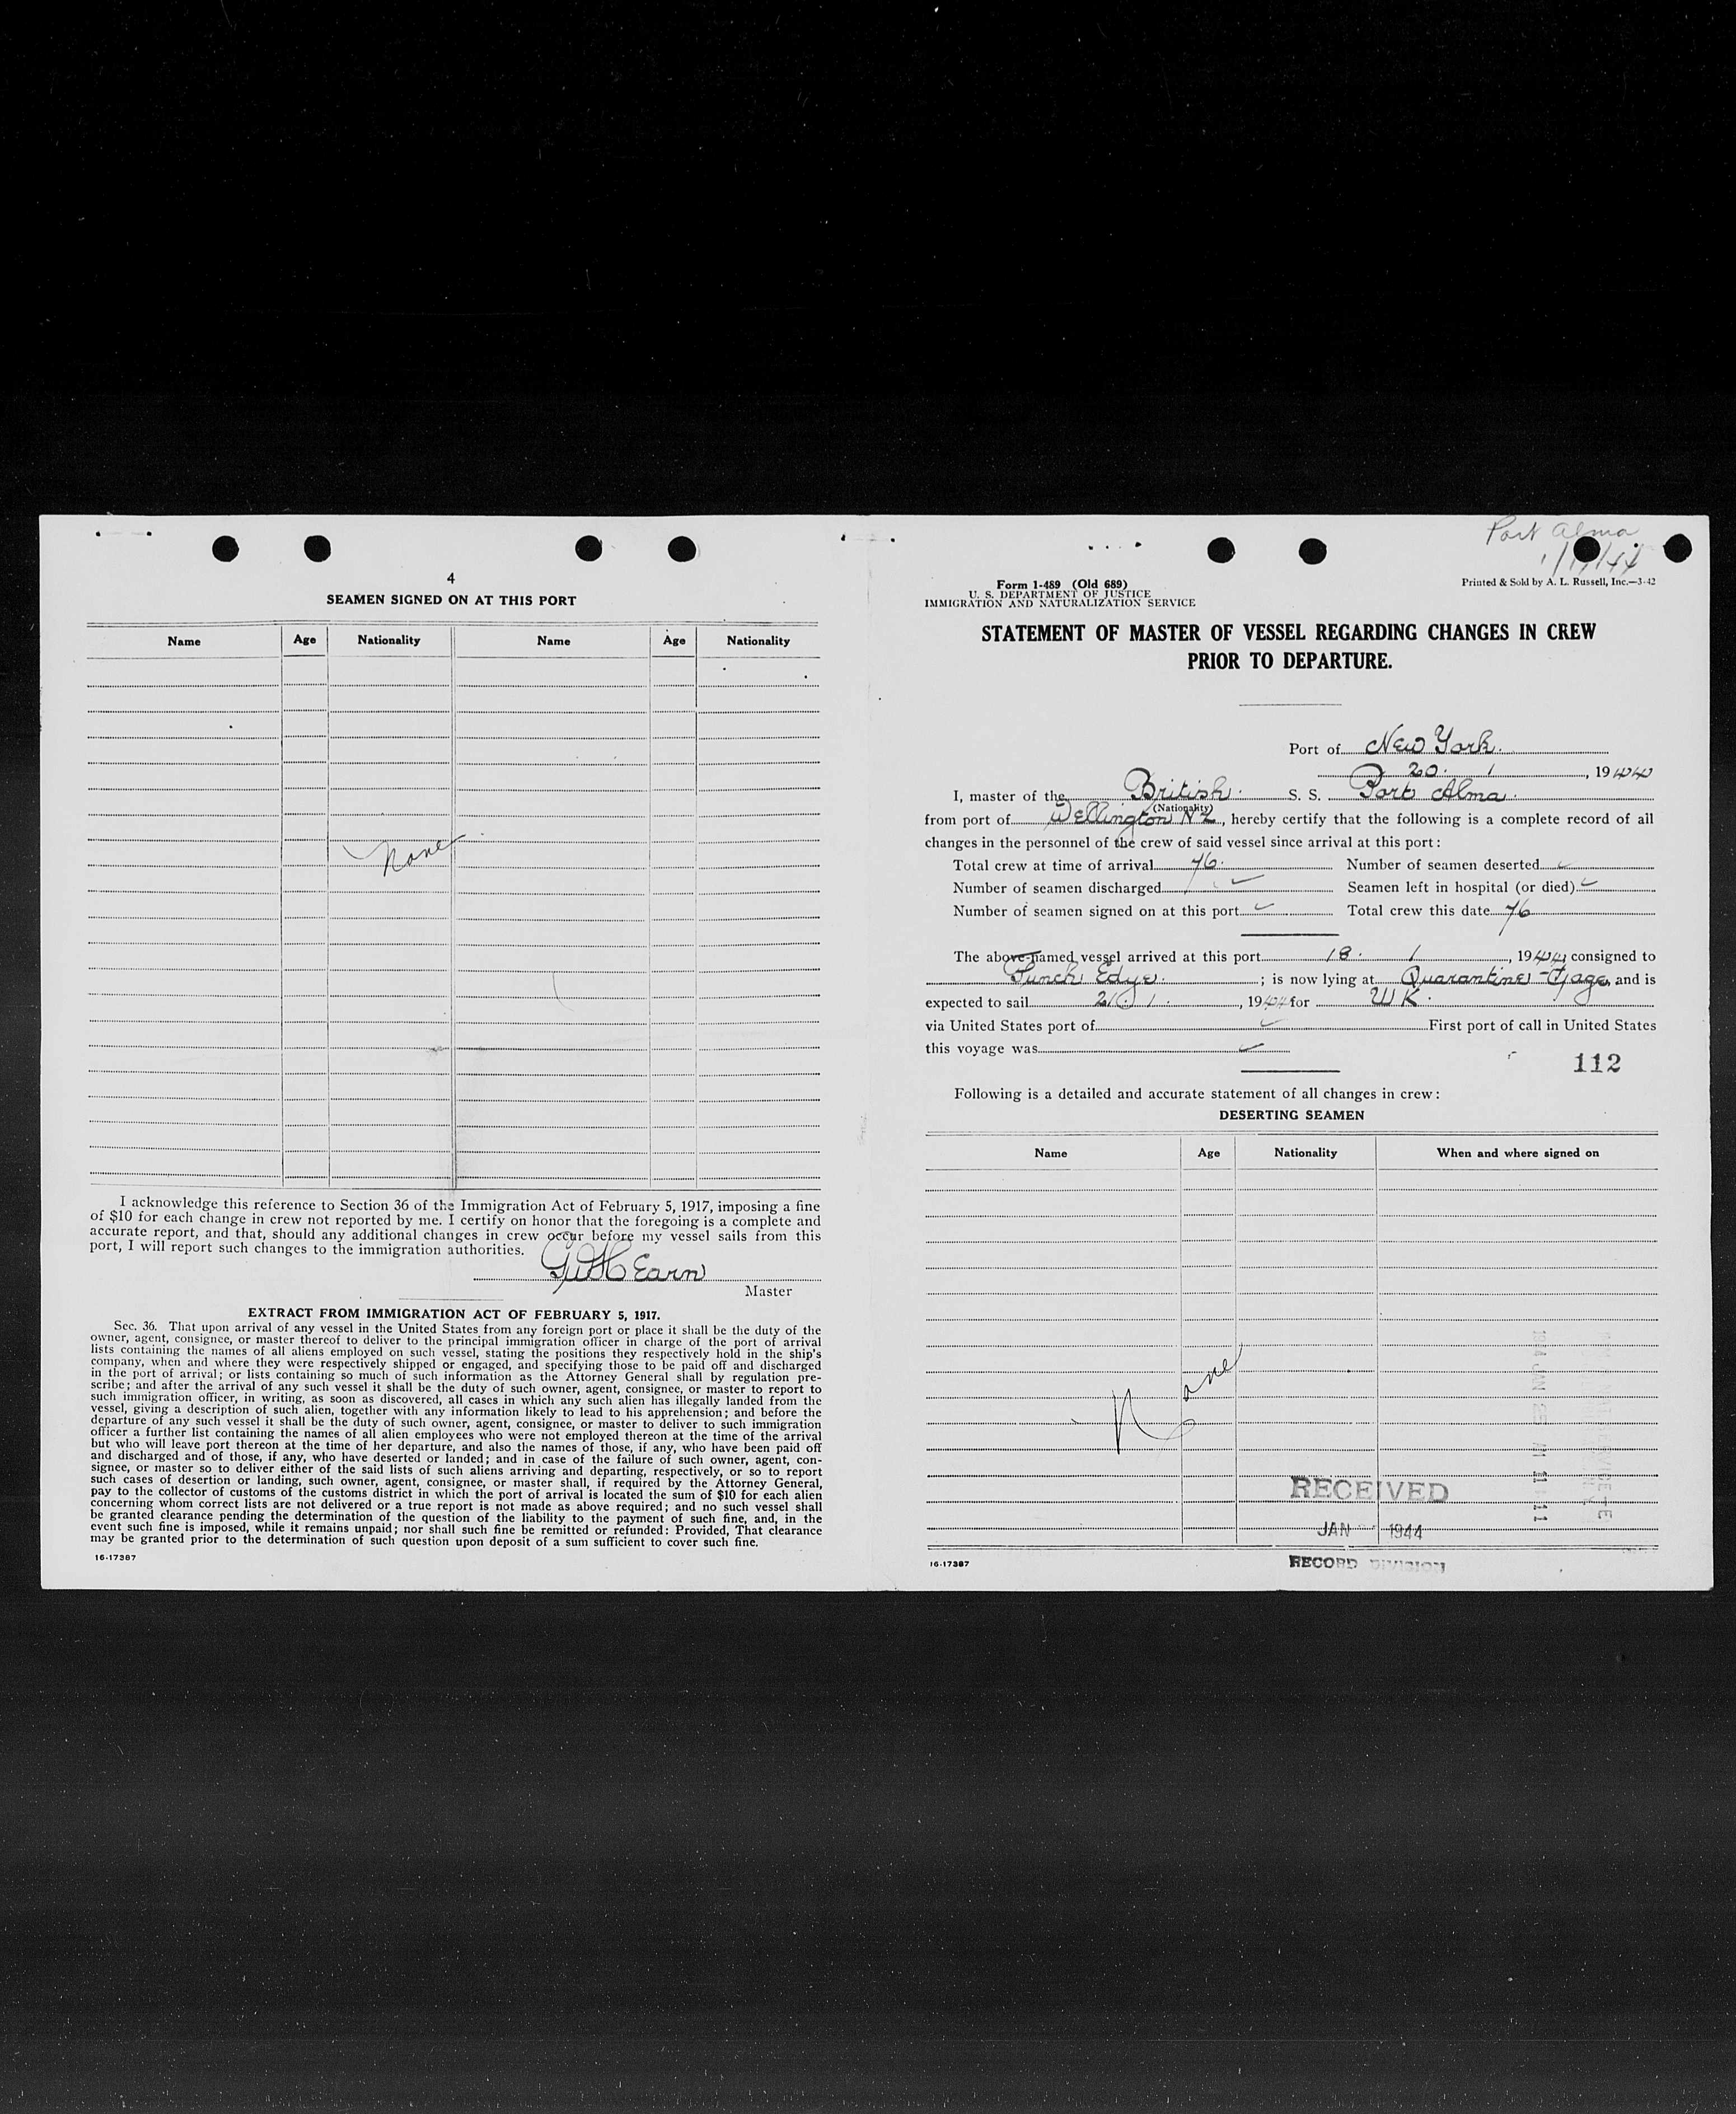 4
SEAMEN SIGNED ON AT THIS PORT
Name Age Nationality Name Age Nationality
None
I acknowledge this reference to Section 36 of the Immigration Act of February 5, 1917, imposing a fine
of $10 for each change in crew not reported by me. I certify on honor that the foregoing is a complete and
accurate report, and that, should any additional changes in crew occur before my vessel sails from this
port, I will report such changes to the immigration authorities.
Earn
Master
EXTRACT FROM IMMIGRATION ACT OF FEBRUARY 5, 1917.
Sec. 36. That upon arrival of any vessel in the United States from any foreign port or place it shall be the duty of the
owner, agent, consignee, or master thereof to deliver to the principal immigration officer in charge of the port of arrival
lists containing the names of all aliens employed on such vessel, stating the positions they respectively hold in the ship's
company, when and where they were respectively shipped or engaged, and specifying those to be paid off and discharged
in the port of arrival; or lists containing so much of such information as the Attorney General shall by regulation pre-
scribe; and after the arrival of any such vessel it shall be the duty of such owner, agent, consignee, or master to report to
such immigration officer, in writing, as soon as discovered, all cases in which any such alien has illegally landed from the
vessel, giving a description of such alien, together with any information likely to lead to his apprehension; and before the
departure of any such vessel it shall be the duty of such owner, agent, consignee, or master to deliver to such immigration
officer a further list containing the names of all alien employees who were not employed thereon at the time of the arrival
but who will leave port thereon at the time of her departure, and also the names of those, if any, who have been paid off
and discharged and of those, if any, who have deserted or landed; and in case of the failure of such owner, agent, con-
signee, or master so to deliver either of the said lists of such aliens arriving and departing, respectively, or so to report
such cases of desertion or landing, such owner, agent, consignee, or master shall, if required by the Attorney General,
pay to the collector of customs of the customs district in which the port of arrival is located the sum of $10 for each alien
concerning whom correct lists are not delivered or a true report is not made as above required; and no such vessel shall
be granted clearance pending the determination of the question of the liability to the payment of such fine, and, in the
event such fine is imposed, while it remains unpaid; nor shall such fine be remitted or refunded: Provided, That clearance
may be granted prior to the determination of such question upon deposit of a sum sufficient to cover such fine.
16-17387
Port Alma
Form 1-489 (Old 689)
U. S. DEPARTMENT OF JUSTICE
IMMIGRATION AND NATURALIZATION SERVICE
Printed & Sold by A. L. Russell, Inc.—3-42
STATEMENT OF MASTER OF VESSEL REGARDING CHANGES IN CREW
PRIOR TO DEPARTURE.
Port of New York.
20. 1, 1944
I, master of the British. S. S. Port Alma.
(Nationality)
from port of Wellington NZ, hereby certify that the following is a complete record of all
changes in the personnel of the crew of said vessel since arrival at this port:
Total crew at time of arrival 76. Number of seamen deserted ✓
Number of seamen discharged ✓ Seamen left in hospital (or died) ✓
Number of seamen signed on at this port ✓ Total crew this date 76
The above-named vessel arrived at this port 18. 1, 1944, consigned to
Funch Edye.; is now lying at Quarantine, and is
expected to sail 21. 1., 1944 for UK.
via United States port of ✓ First port of call in United States
this voyage was ✓
112
Following is a detailed and accurate statement of all changes in crew:
DESERTING SEAMEN
Name Age Nationality When and where signed on
None
1944 JAN 25 AM 11 11
RECEIVED
JAN 1944
RECORD DIVISION
16-17387